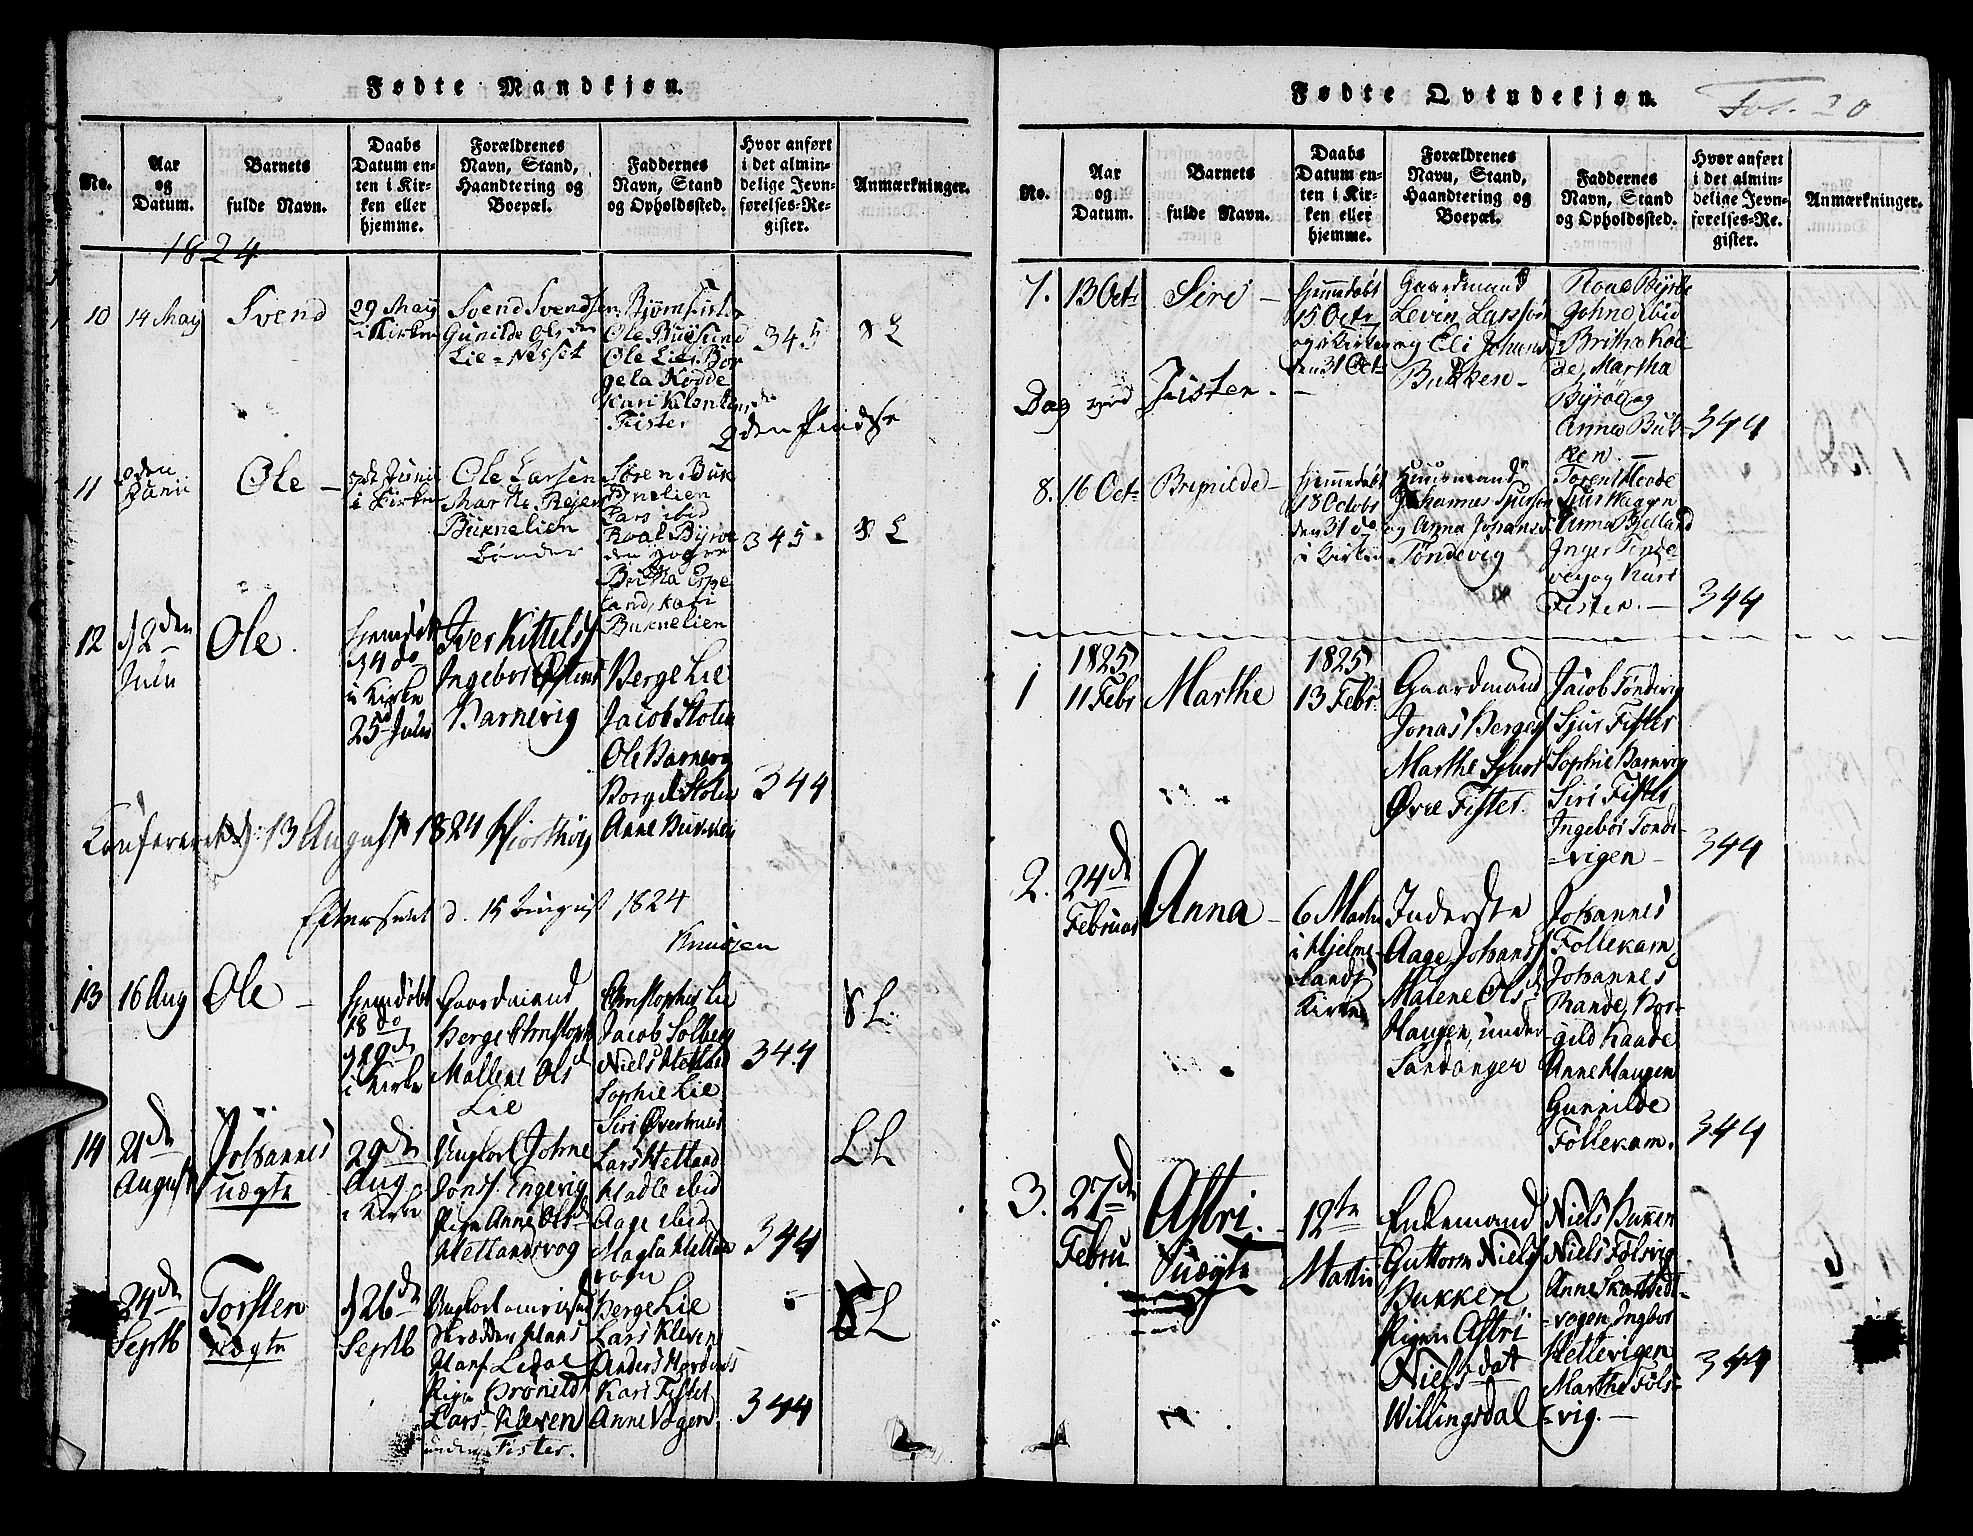 Fødte Mandkjøn.
No.
Aar
og
Datum.
Barnets
fulde Navn.
Daabs
Datum en-
ten i Kir-
ken eller
hjemme.
Forældrenes
Navn, Stand,
Haandtering og
Boepæl.
Faddernes
Navn, Stand
og Opholdssted.
Hvor anført
i det almin-
delige Jevn-
førelses-Re-
gister.
Anmærkninger.
1824
10
14 May
Svend
29 May
i Kirken
Svend Svendsen
Gunilde Ols
Lie-Nesset
Ole
Ole Lie, Bor
gela Kodde
Kari
Fister
345
8 L
2den Pindse
11
Junii
Ole
i Kirken
Ole Larsen
Marthe
Buknelien
Bønder
Søren Buk
nelien
Lars ibid
Roal Byrøe
Britha Espe
land, Kari
Buknelien
345
8 L
12
d 2den
Julii
Ole.
Hjemdøbt
d 4 do
i Kirke
25 Julii
Iver Kittels
Ingebor
Barnevig
Berge Lie
Jacob Stolen
Ole Barnevig
Borgel Stolen
Anne
344
Confereret d: 13 August 1824 Hiorthøy
Efterseet d. 15 August 1824
Knudsen
13
16 Aug
Ole
Hjemdøbt
18 do
29 de
i Kirke
Gaardmand
Berge Christoph
Mallene Ols
Lie
Christopher Lie
Jacob Solberg
Niels Hetland
Sophie Lie
Siri Øverhuus
344
8 L.
14
21de
August
Johannes
uægte
29de
Aug
i Kirke
Ungkarl Johne
Jons. Engevig
Pigen Anne Olsd
Hetlandsvog
Lars Hetland
Hadle ibid
Aage ibid
Magla Hetlan
vogn
344
LL
24de
Septb
Torsten
uægte
d 26de
Septb
Ungkarl
Skrædder Hans
Hans. Lidal
Pigen Bronild
Larsd Kleven
under Fister.
Berge Lie
Lars Kleven
Anders
Kari Fister
Anne Vogen.
344
8 L
Fødte Qvindekjøn.
Fol. 20
No.
Aar
og
Datum.
Barnets
fulde Navn.
Daabs
Datum en-
ten i Kir-
ken eller
hjemme.
Forældrenes
Navn, Stand,
Haandtering og
Boepæl.
Faddernes
Navn, Stand
og Opholdssted.
Hvor anført
i det almin-
delige Jevn-
førelses-Re-
gister.
Anmærkninger.
7.
13 Oct
Siri
Hjemmedøbt
15 Octr
og i Kirken
den 31 Oct
Gaardmand
Levin Larssøn
og Eli Johans
Bukken
Roae Byrøe
Johne ibid
Britha Kod
de, Martha
Byrøe og
Anna Buk
ken.
344
8.
16 Oct
Brynilde
Hjemmedøbt
18 Octobr
den 31 do
i Kirken
Huusmand
Johannes Sjurson
og Anna Johans
Tøndevig
Torent Meode
Sjur Vaagen
Anna Bjelland
Inger Tønde
vig og Kari
Fister.
344
1
1825
11 Febr
Marthe
1825
13 Febr.
Gaardmand
Jonas Berges
Marthe Sjurs
Øvre Fister.
Jacob Tøndevig
Sjur Fister
Sophie Barnevig
Siri Fister
Ingebor Tønde-
-vigen
344
2.
24de
Februar
Anna
6 Martii
i Hjelme-
-lands
Kirke
Inderste
Aage Johans
Malene Olsd
Haugen, under
Sandanger
Johannes
Follekam,
Johannes
Rande, Bor-
-gild Kaade
Anne Haugen
Gunnilde
Follekam.
344
3.
27de
Febru
Astri.
Uægte
12te
Martii
Enkemand
Guttorm Niels
Bukken
Pigen Astri
Nielsdat
Willingsdal
Niels Bukken
Niels Følsvig
Anne
-vogen, Ingbor
Hettevigen
Marthe Føls-
-vig.
344